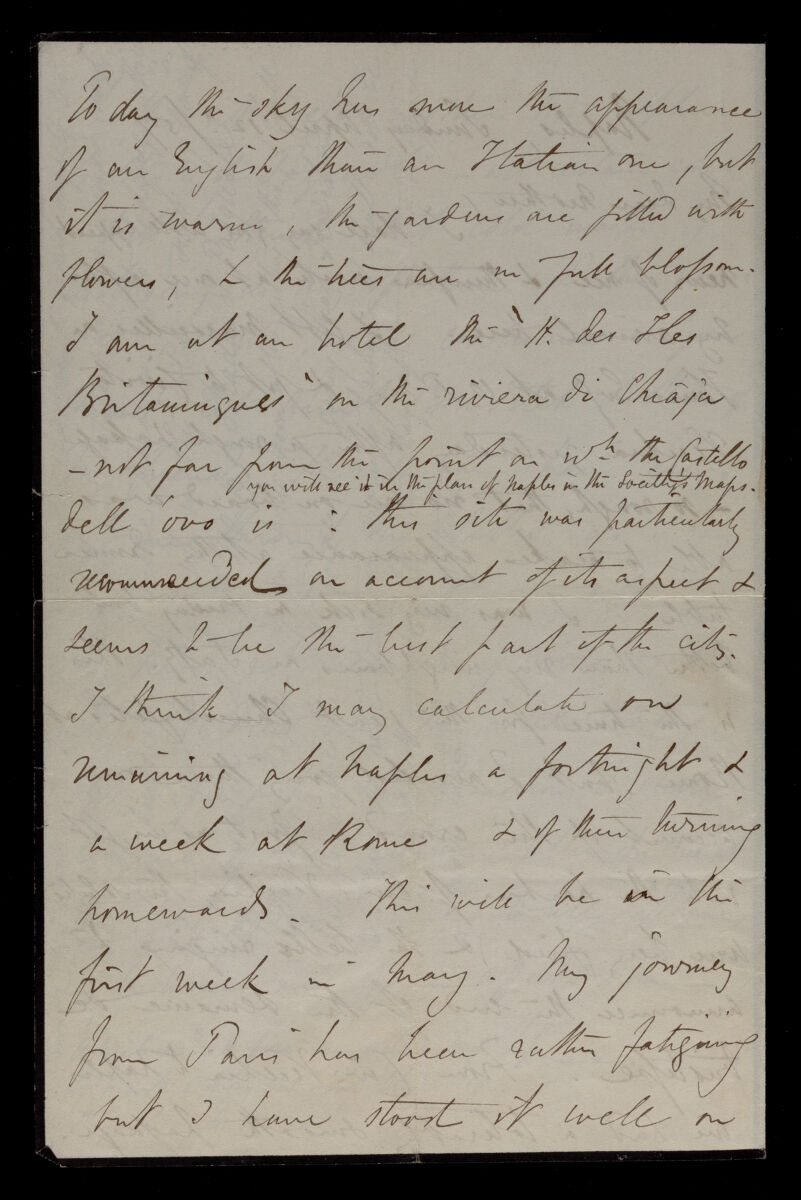 To day the sky has more the appearance
of an English than an Italian one, but
it is warm, the gardens are filled with
flowers, & the trees are in full blossom.
I am at an hotel the 'H. des Iles
Britanniques' on the riviera di Chiaja
- not far from the point on wh the Castello
you will see it in the plan of Naples in the Society's Maps.
dell 'ovo is : this site was particularly
recommended on account of its aspect &
seems to be the best part of the city.
I think I may calculate on
remaining at Naples a fortnight &
a week at Rome & of then turning
homewards. This will be in the
first week in May. My journey
from Paris has been rather fatiguing
but I have stood it well on